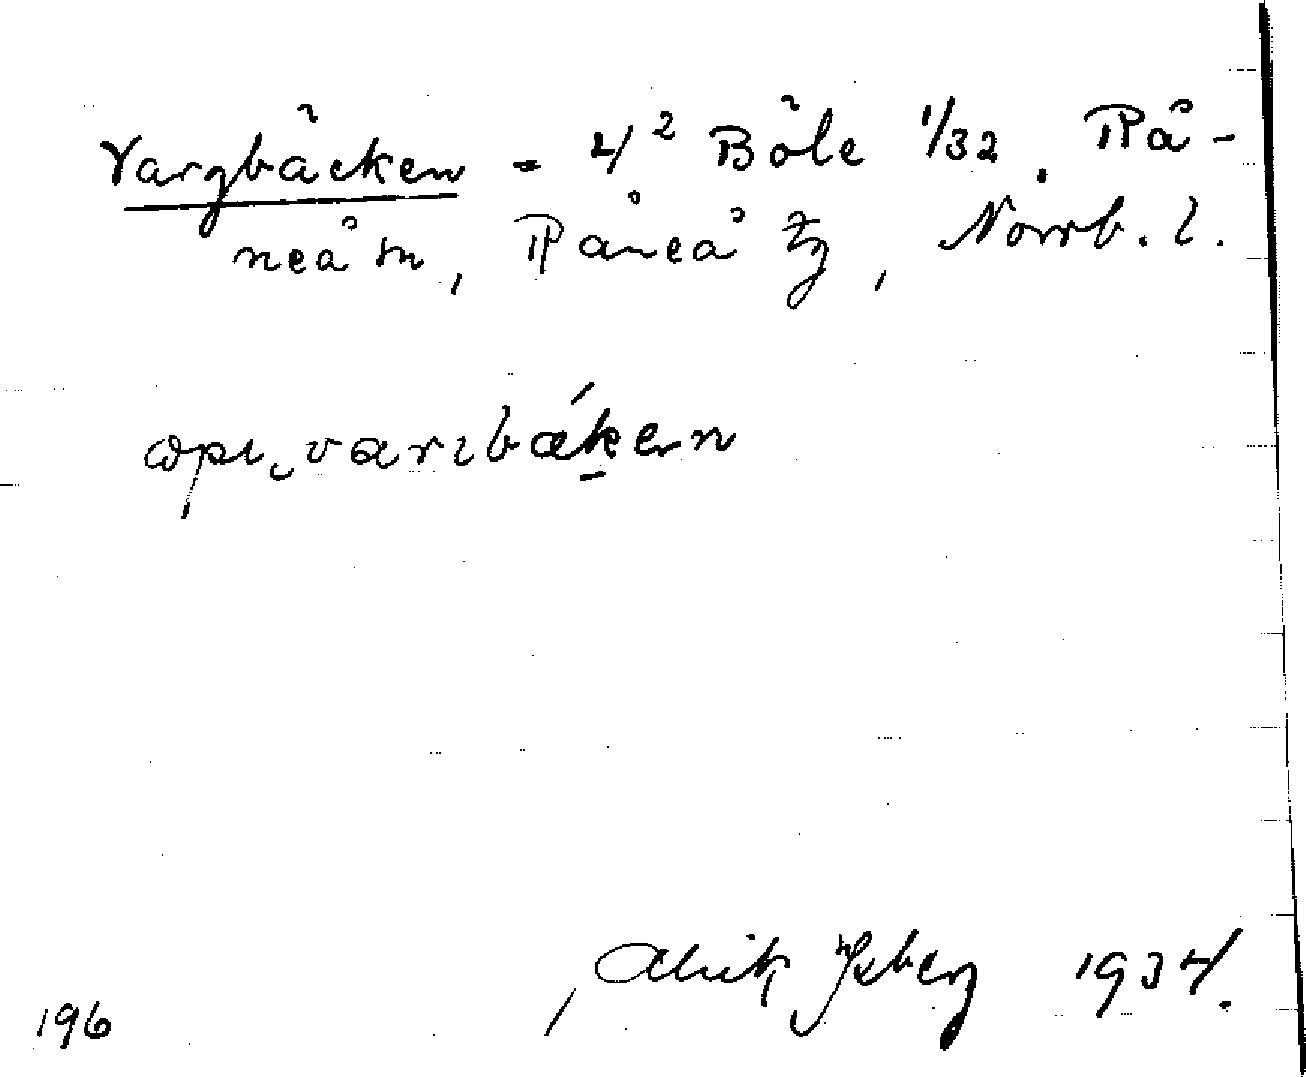 Vargbäcken = 4² Böle 1/32. Rå-
neå sn, Råneå tg, Norrb. l.
varɩbǽken
Alrik Isberg 1934.
196